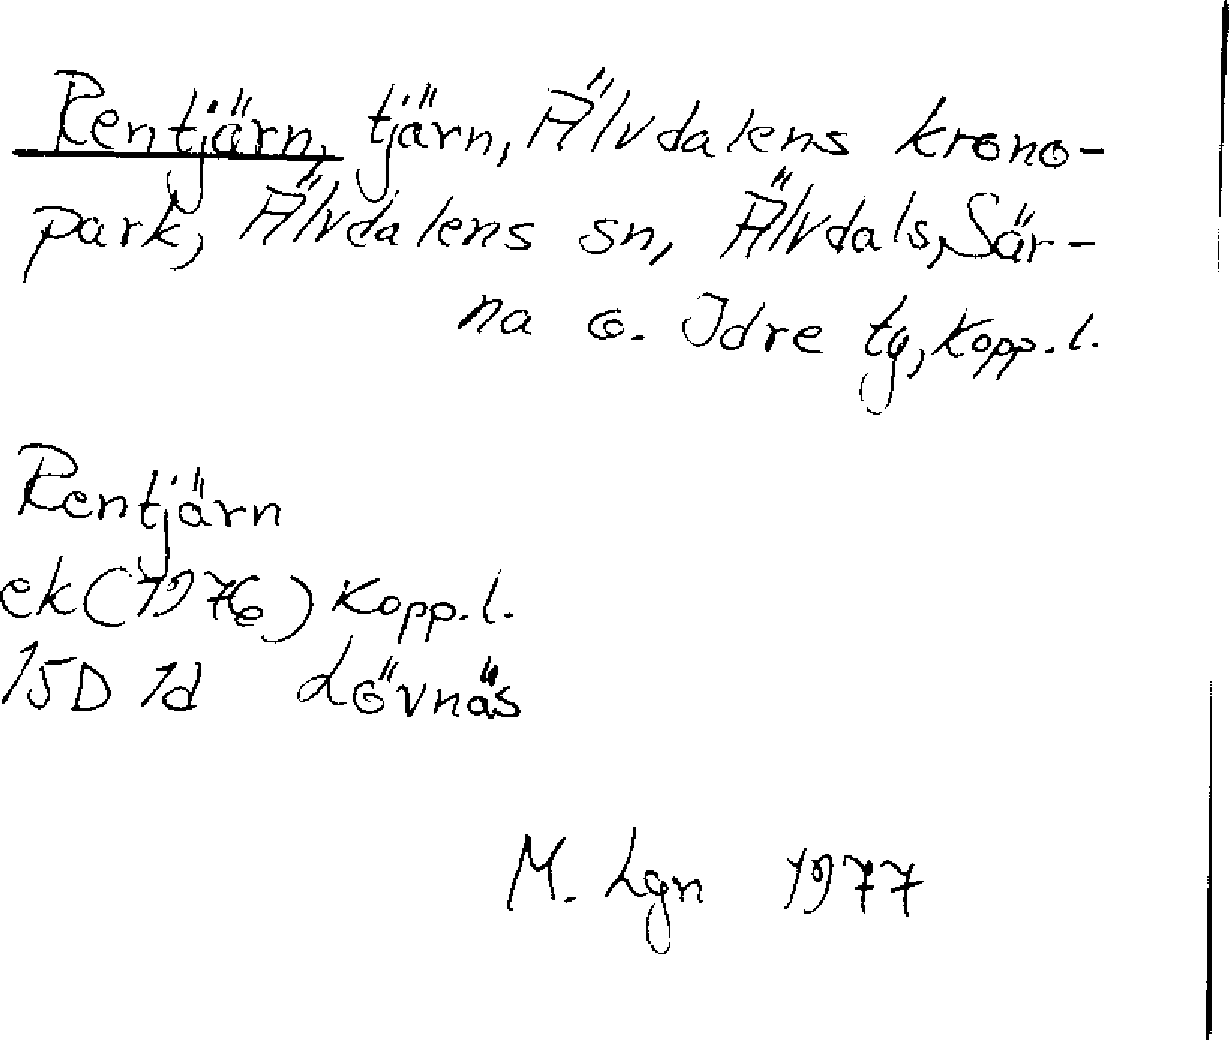 Rentjärn, tjärn, Älvdalens krono-
park, Älvdalens sn, Älvdals, Sär-
na o. Idre tg, Kopp. l.
Rentjärn
ek (1976) Kopp. l.
15D 1d Lövnäs
M. Lgn 1977